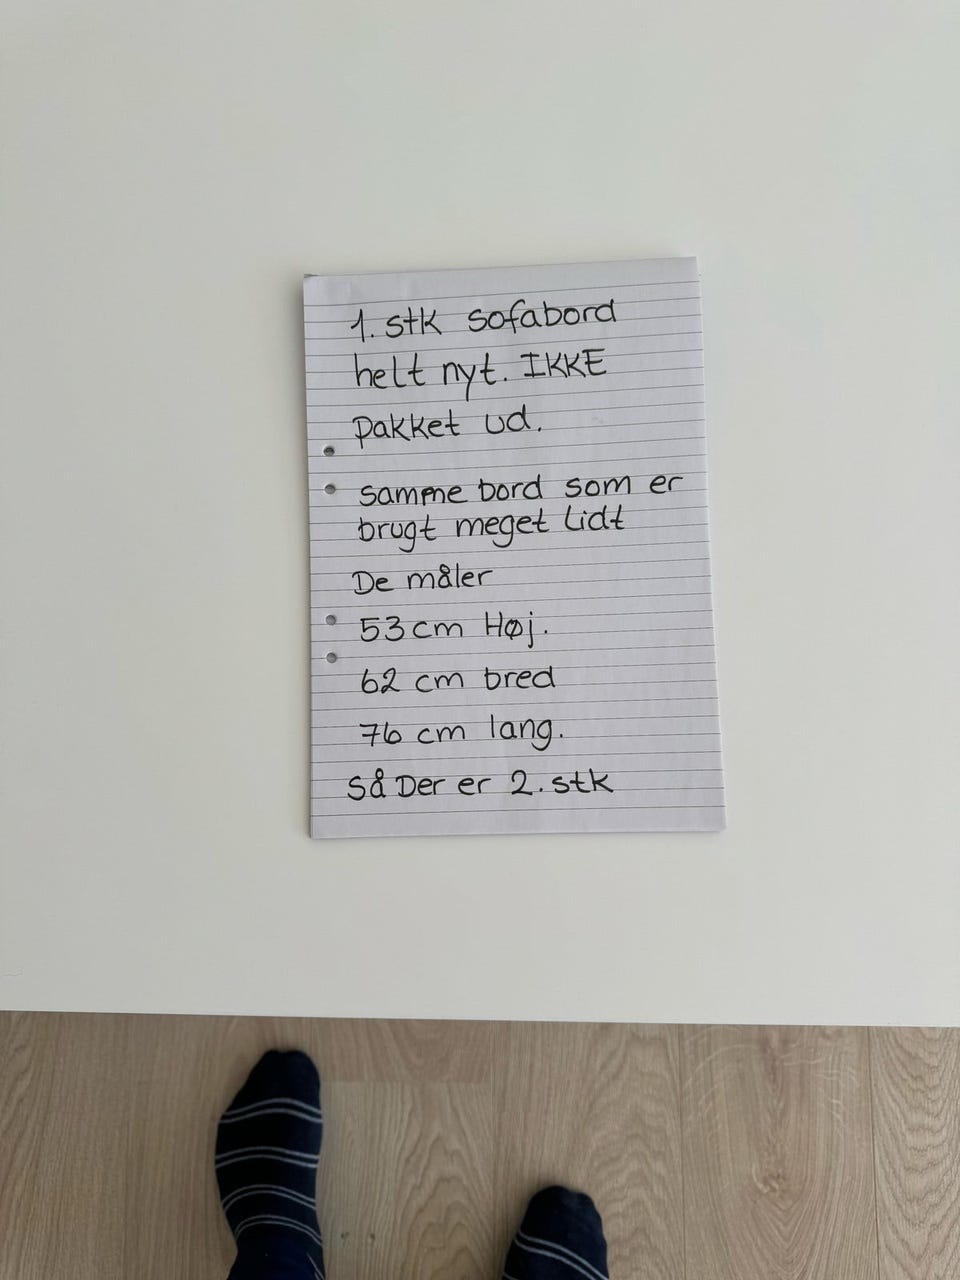 1. stk sofabord
helt nyt. IKKE
pakket ud.
samme bord som er
brugt meget lidt
De måler
53 cm Høj.
62 cm bred
76 cm lang.
så Der er 2. stk